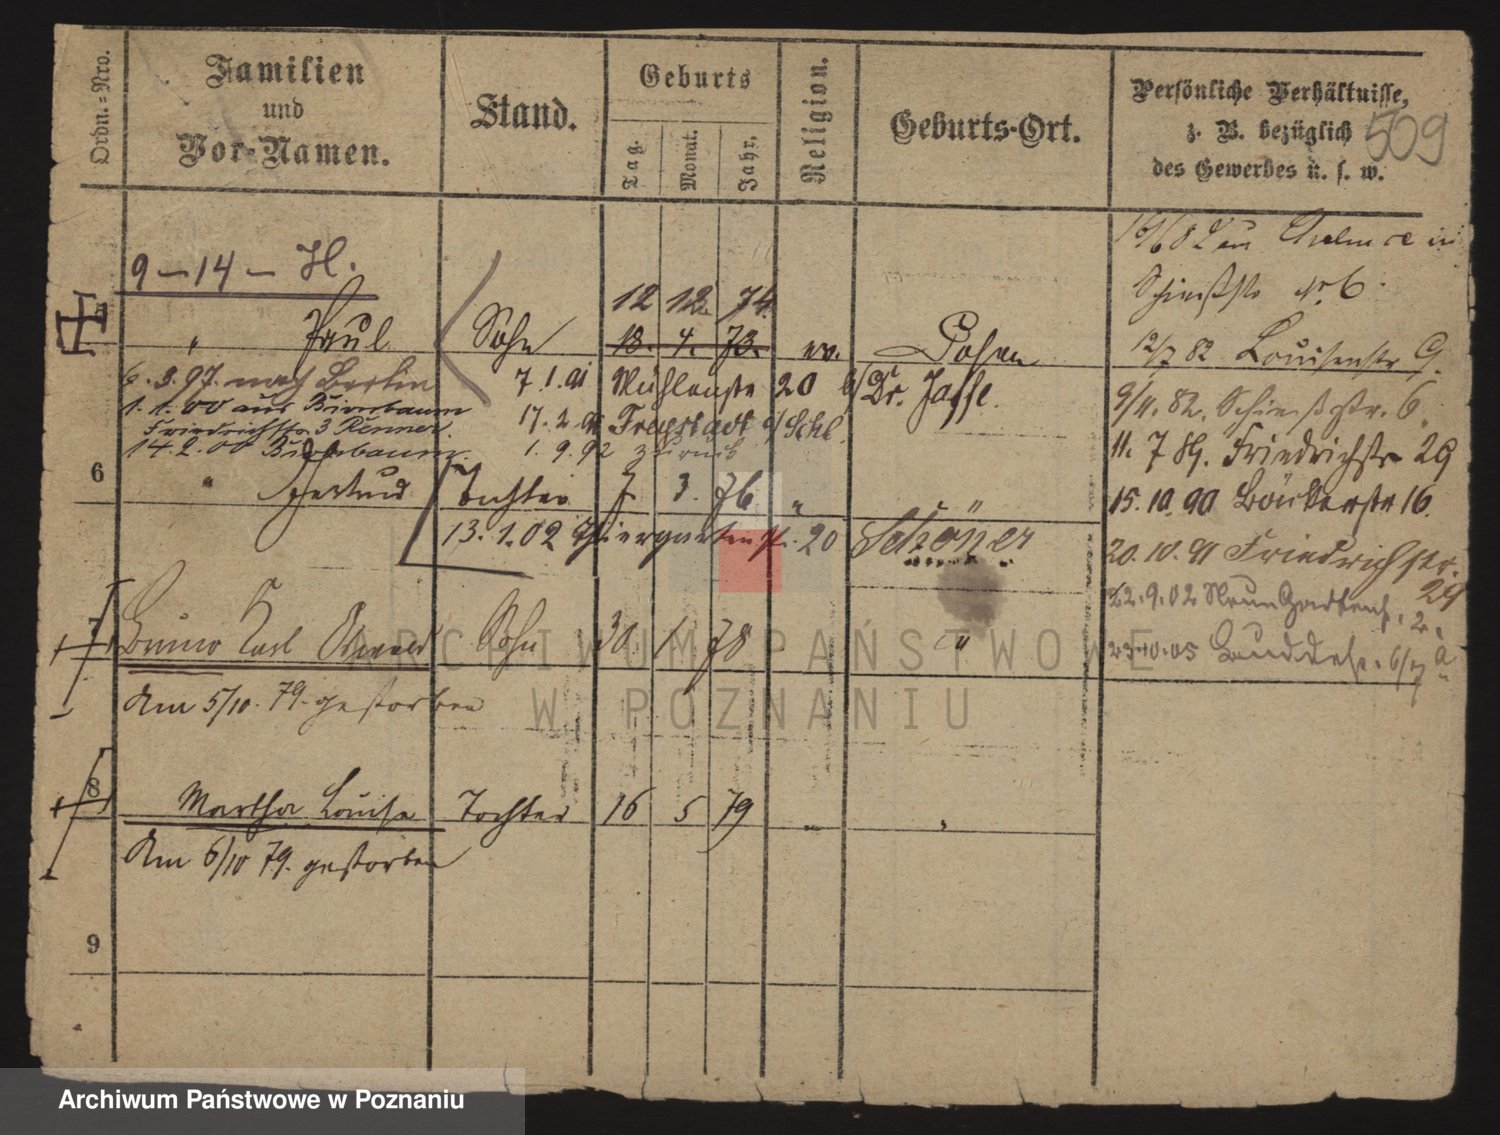 Ordn.-Nro.
Familien
und
Vor-Namen.
Stand.
Geburts
Tag.
Monat.
Jahr.
Religion.
Geburts-Ort.
Persönliche Verhältnisse,
z. B. bezüglich
des Gewerbes u. s. w.
509
9 - 14 - H.
12 12. 74.
5 " Paul Sohn 18. 4. 73. ev. Posen
6. 3. 97. nach Berlin
7. 1. 91 Mühlenstr 20 b/ Dr. Jaffe.
1. 1. 00 aus Birnbaum
Friedrichstr. 3 Renner.
14. 2. 00 Birnbaum.
Fraustadt
1. 9. 92 zurück
6 " Gertrud Tochter 7 3. 76 " "
13. 1. 02 Thiergartenstr. 20 Schöner
7 Bruno Karl Sohn 30 1. 78 "
Am 5/10. 79. gestorben
8 Martha Louise Tochter 16 5 79 " "
Am 6/10 79. gestorben
9
in
Schießstr No 6.
12/7 82 Louisenstr 9.
9/11. 82. Schießstr. 6
11. 7 89. Friedrichstr 29
15. 10. 90 Bäckerstr 16.
20. 10. 91 Friedrichstr.
29
22. 9. 02
23.10.05
ARCHIWUM PAŃSTWOWE
W POZNANIU
Archiwum Państwowe w Poznaniu